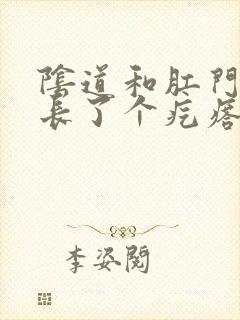 陰道和肛門
長了个疙瘩
李姿閱